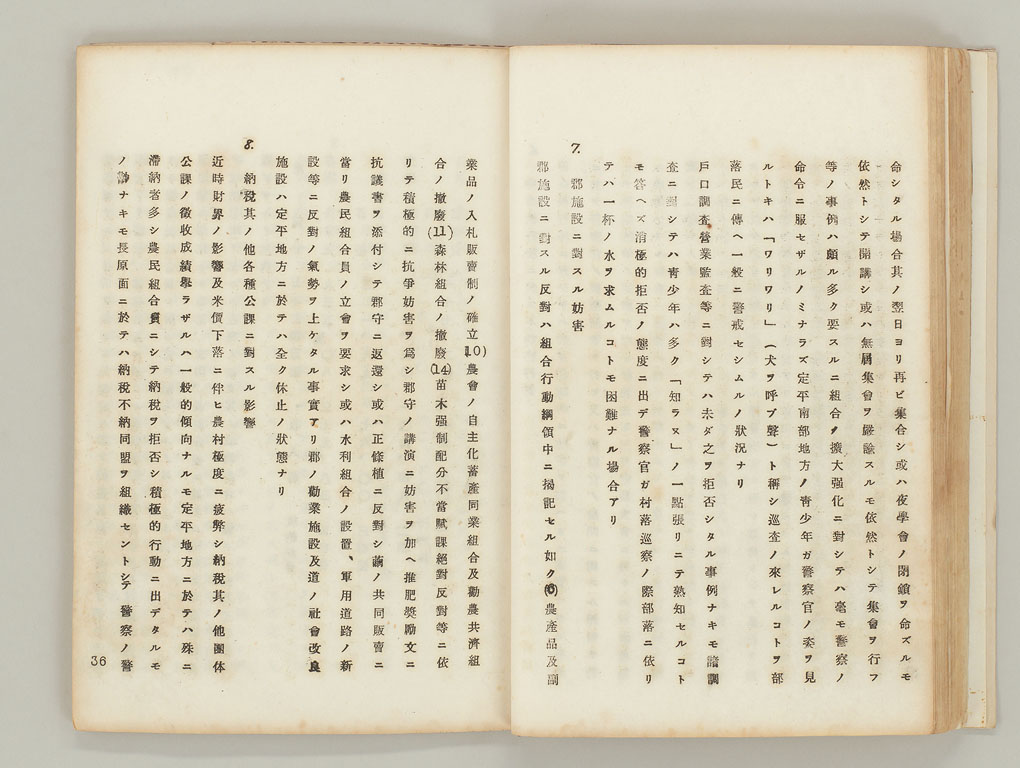 命シタル場合其ノ翌日ヨリ再ビ集合シ或ハ夜學會ノ閉鎖ヲ命ズルモ
依然トシテ開講シ或ハ無屆集會ヲ嚴諭スルモ依然トシテ集會ヲ行フ
等ノ事例ハ頗ル多ク要スルニ組合ノ擴大强化ニ對シテハ毫モ警察ノ
命令ニ服セザルノミナラズ定平南部地方ノ青少年ガ警察官ノ姿ヲ見
ルトキハ「ワリワリ」（犬ヲ呼ブ聲）ト稱シ巡査ノ來レルコトヲ部
落民ニ傳ヘ一般ニ警戒セシムルノ狀況ナリ
戶口調査營業監査等ニ對シテハ未ダ之ヲ拒否シタル事例ナキモ諸調
査ニ對シテハ青少年ハ多ク「知ラヌ」ノ一點張リニテ熟知セルコト
モ答ヘズ消極的拒否ノ態度ニ出デ警察官ガ村落巡察ノ際部落ニ依リ
テハ一杯ノ水ヲ求ムルコトモ困難ナル場合アリ
7.
郡施設ニ對スル妨害
郡施設ニ對スル反對ハ組合行動綱領中ニ揭記セル如ク(6)農產品及副
業品ノ入札販賣制ノ確立(10)農會ノ自主化蓄產同業組合及勸農共濟組
合ノ撤廢(11)森林組合ノ撤廢(14)苗木强制配分不當賦課絕對反對等ニ依
リテ積極的ニ抗爭妨害ヲ爲シ郡守ノ講演ニ妨害ヲ加ヘ推肥獎勵文ニ
抗議書ヲ添付シテ郡守ニ返還シ或ハ正條植ニ反對シ繭ノ共同販賣ニ
當リ農民組合員ノ立會ヲ要求シ或ハ水利組合ノ設置、軍用道路ノ新
設等ニ反對ノ氣勢ヲ上ケタル事實アリ郡ノ勸業施設及道ノ社會改良
施設ハ定平地方ニ於テハ全ク休止ノ狀態ナリ
8.
納稅其ノ他各種公課ニ對スル影響
近時財界ノ影響及米價下落ニ伴ヒ農村極度ニ疲弊シ納稅其ノ他團体
公課ノ徵收成績擧ラザルハ一般的傾向ナルモ定平地方ニ於テハ殊ニ
滯納者多シ農民組合員ニシテ納稅ヲ拒否シ積極的行動ニ出デタルモ
ノ尠ナキモ長原面ニ於テハ納稅不納同盟ヲ組織セントシテ警察ノ警
36